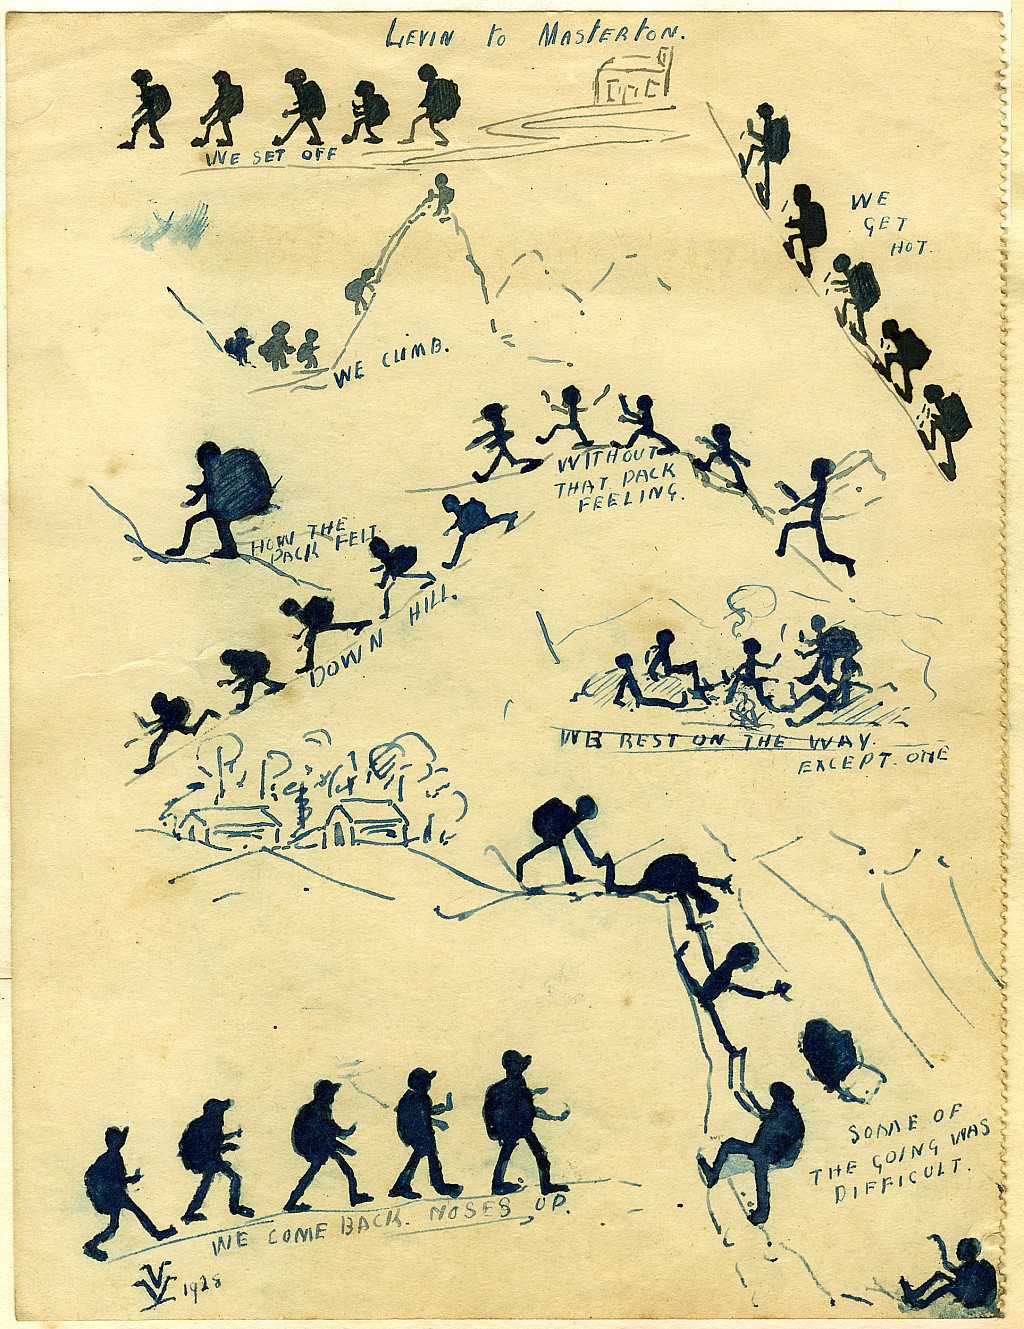 LEVIN to MASTERTON.
WE SET OFF
WE
GET
HOT.
WE CLIMB.
WITHOUT
THAT PACK
FEELING.
HOW THE
PACK FELT
DOWN HILL.
WE REST ON THE WAY.
EXCEPT. ONE
SOME OF
THE GOING WAS
DIFFICULT.
WE COME BACK. NOSES UP.
1928